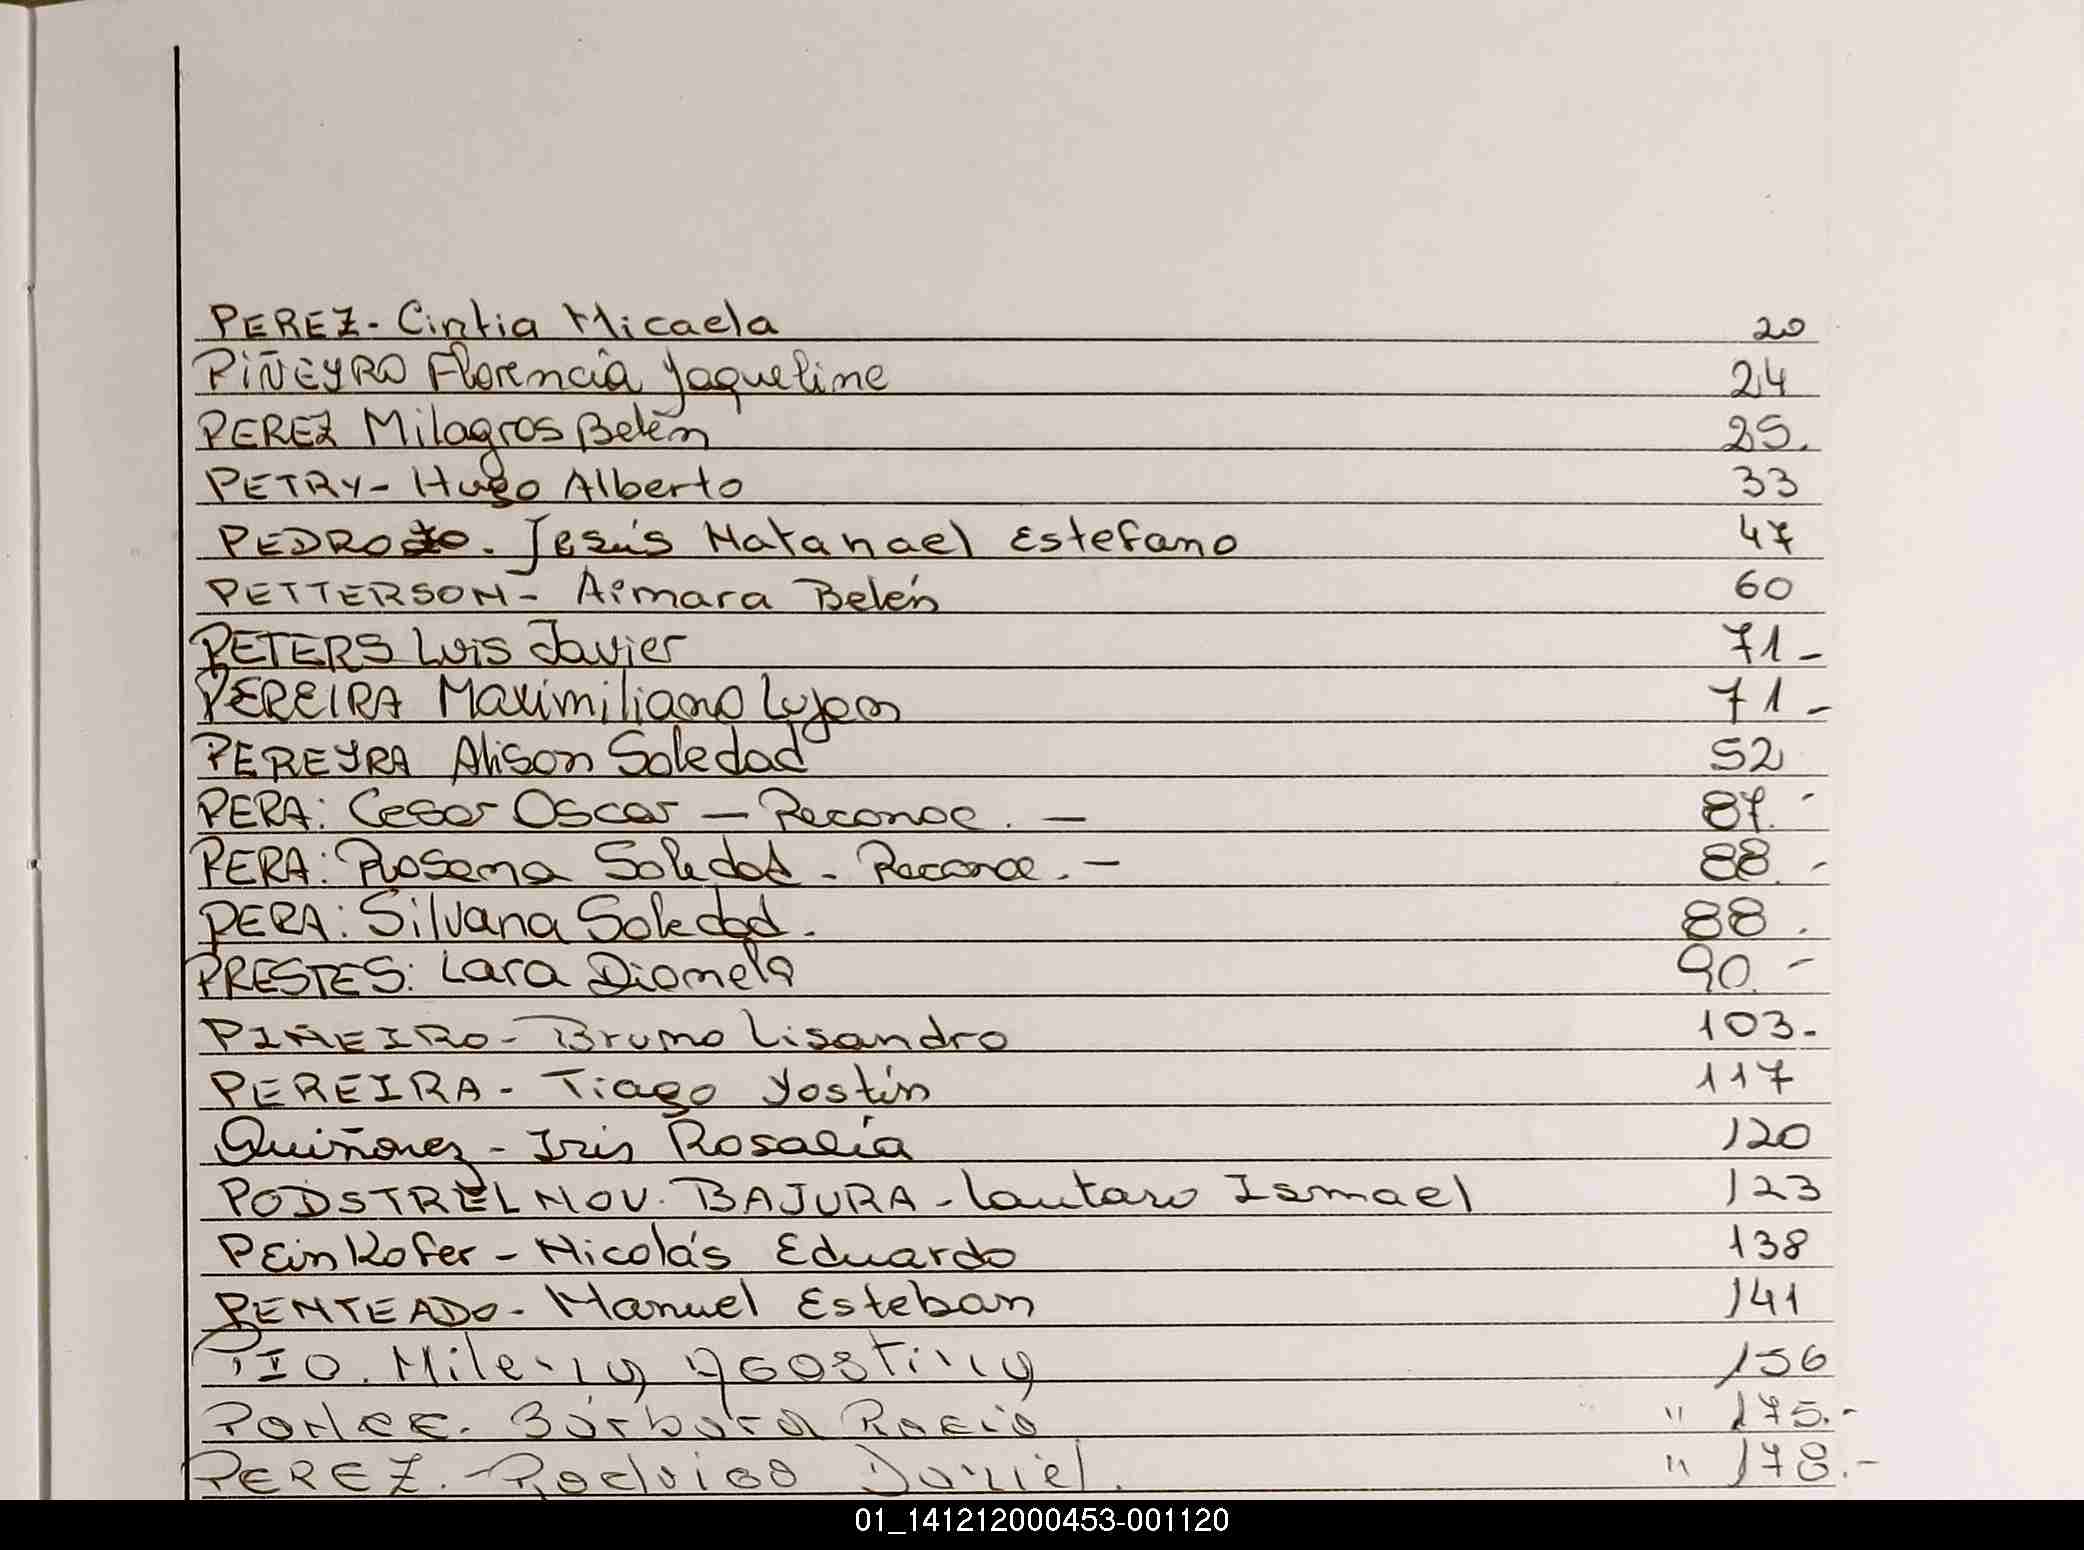 PEREZ- Cintia Micaela 20
PIÑEYRO Florencia Jaqueline 24
PEREZ Milagros Belén 25.
PETRY- Hugo Alberto 33
PEDROZO. Jesús Natanael Estefano 47
PETTERSON- Aimara Belén 60
PETERS Luis Javier 71-
PEREIRA Maximiliano Lujan 71-
PEREYRA Alison Soledad 52
PERA: Cesar Oscar - Reconoc. - 87.-
PERA: Rosana Soledad - Reconoc. - 88.-
PERA: Silvana Soledad. 88.
PRESTES: Lara Dionela 90.-
PIÑEIRO- Bruno Lisandro 103-
PEREIRA- Tiago Yostin 117
Quiñonez- Iris Rosalía 120
PODSTRELNOV. BAJURA- Lautaro Ismael 123
PEinKofer- Nicolás Eduardo 138
PENTEADO- Manuel Esteban 141
PIO. Milena Agostina 156
PONCE. Bárbara Rocio " 175.-
PEREZ.- Rodrigo Daniel. " 178.-
01_141212000453-001120